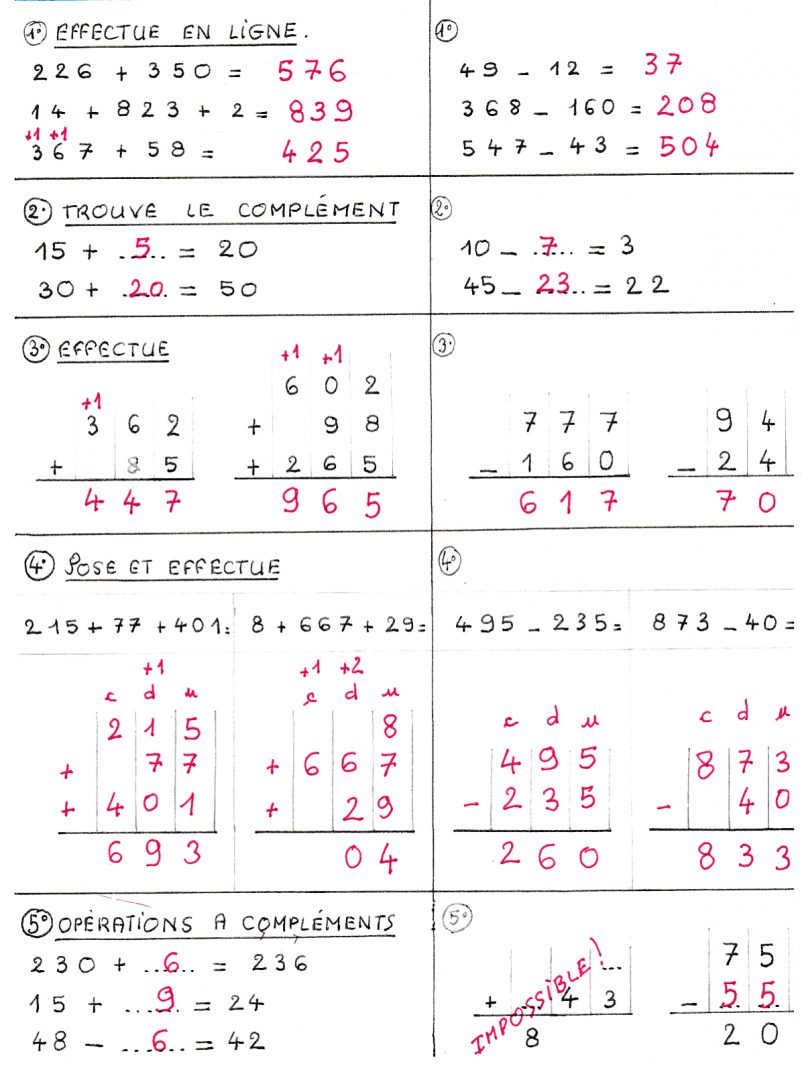 1° EFFECTUE EN LIGNE.
226 + 350 = 576
14 + 823 + 2 = 839
+1 +1
367 + 58 = 425
1°
49 - 12 = 37
368 - 160 = 208
547 - 43 = 504
2° TROUVE LE COMPLÉMENT
15 + ..5.. = 20
30 + .20. = 50
2°
10 - .7... = 3
45 - 23.. = 22
3° EFFECTUE
+1
362
+ 85
447
+1 +1
602
+ 98
+ 265
965
3°
777
- 160
617
94
- 24
70
4° POSE ET EFFECTUE
215 + 77 + 401 =
+1
c d u
215
+ 77
+ 401
693
8 + 667 + 29 =
+1 +2
c d u
8
+ 667
+ 29
04
4°
495 - 235 =
c d u
495
- 235
260
873 - 40 =
c d u
873
- 40
833
5° OPÉRATIONS A COMPLÉMENTS
230 + ..6.. = 236
15 + ....9. = 24
48 - ...6.. = 42
5°
...
+ ... 43
8
IMPOSSIBLE!
75
- 55
20